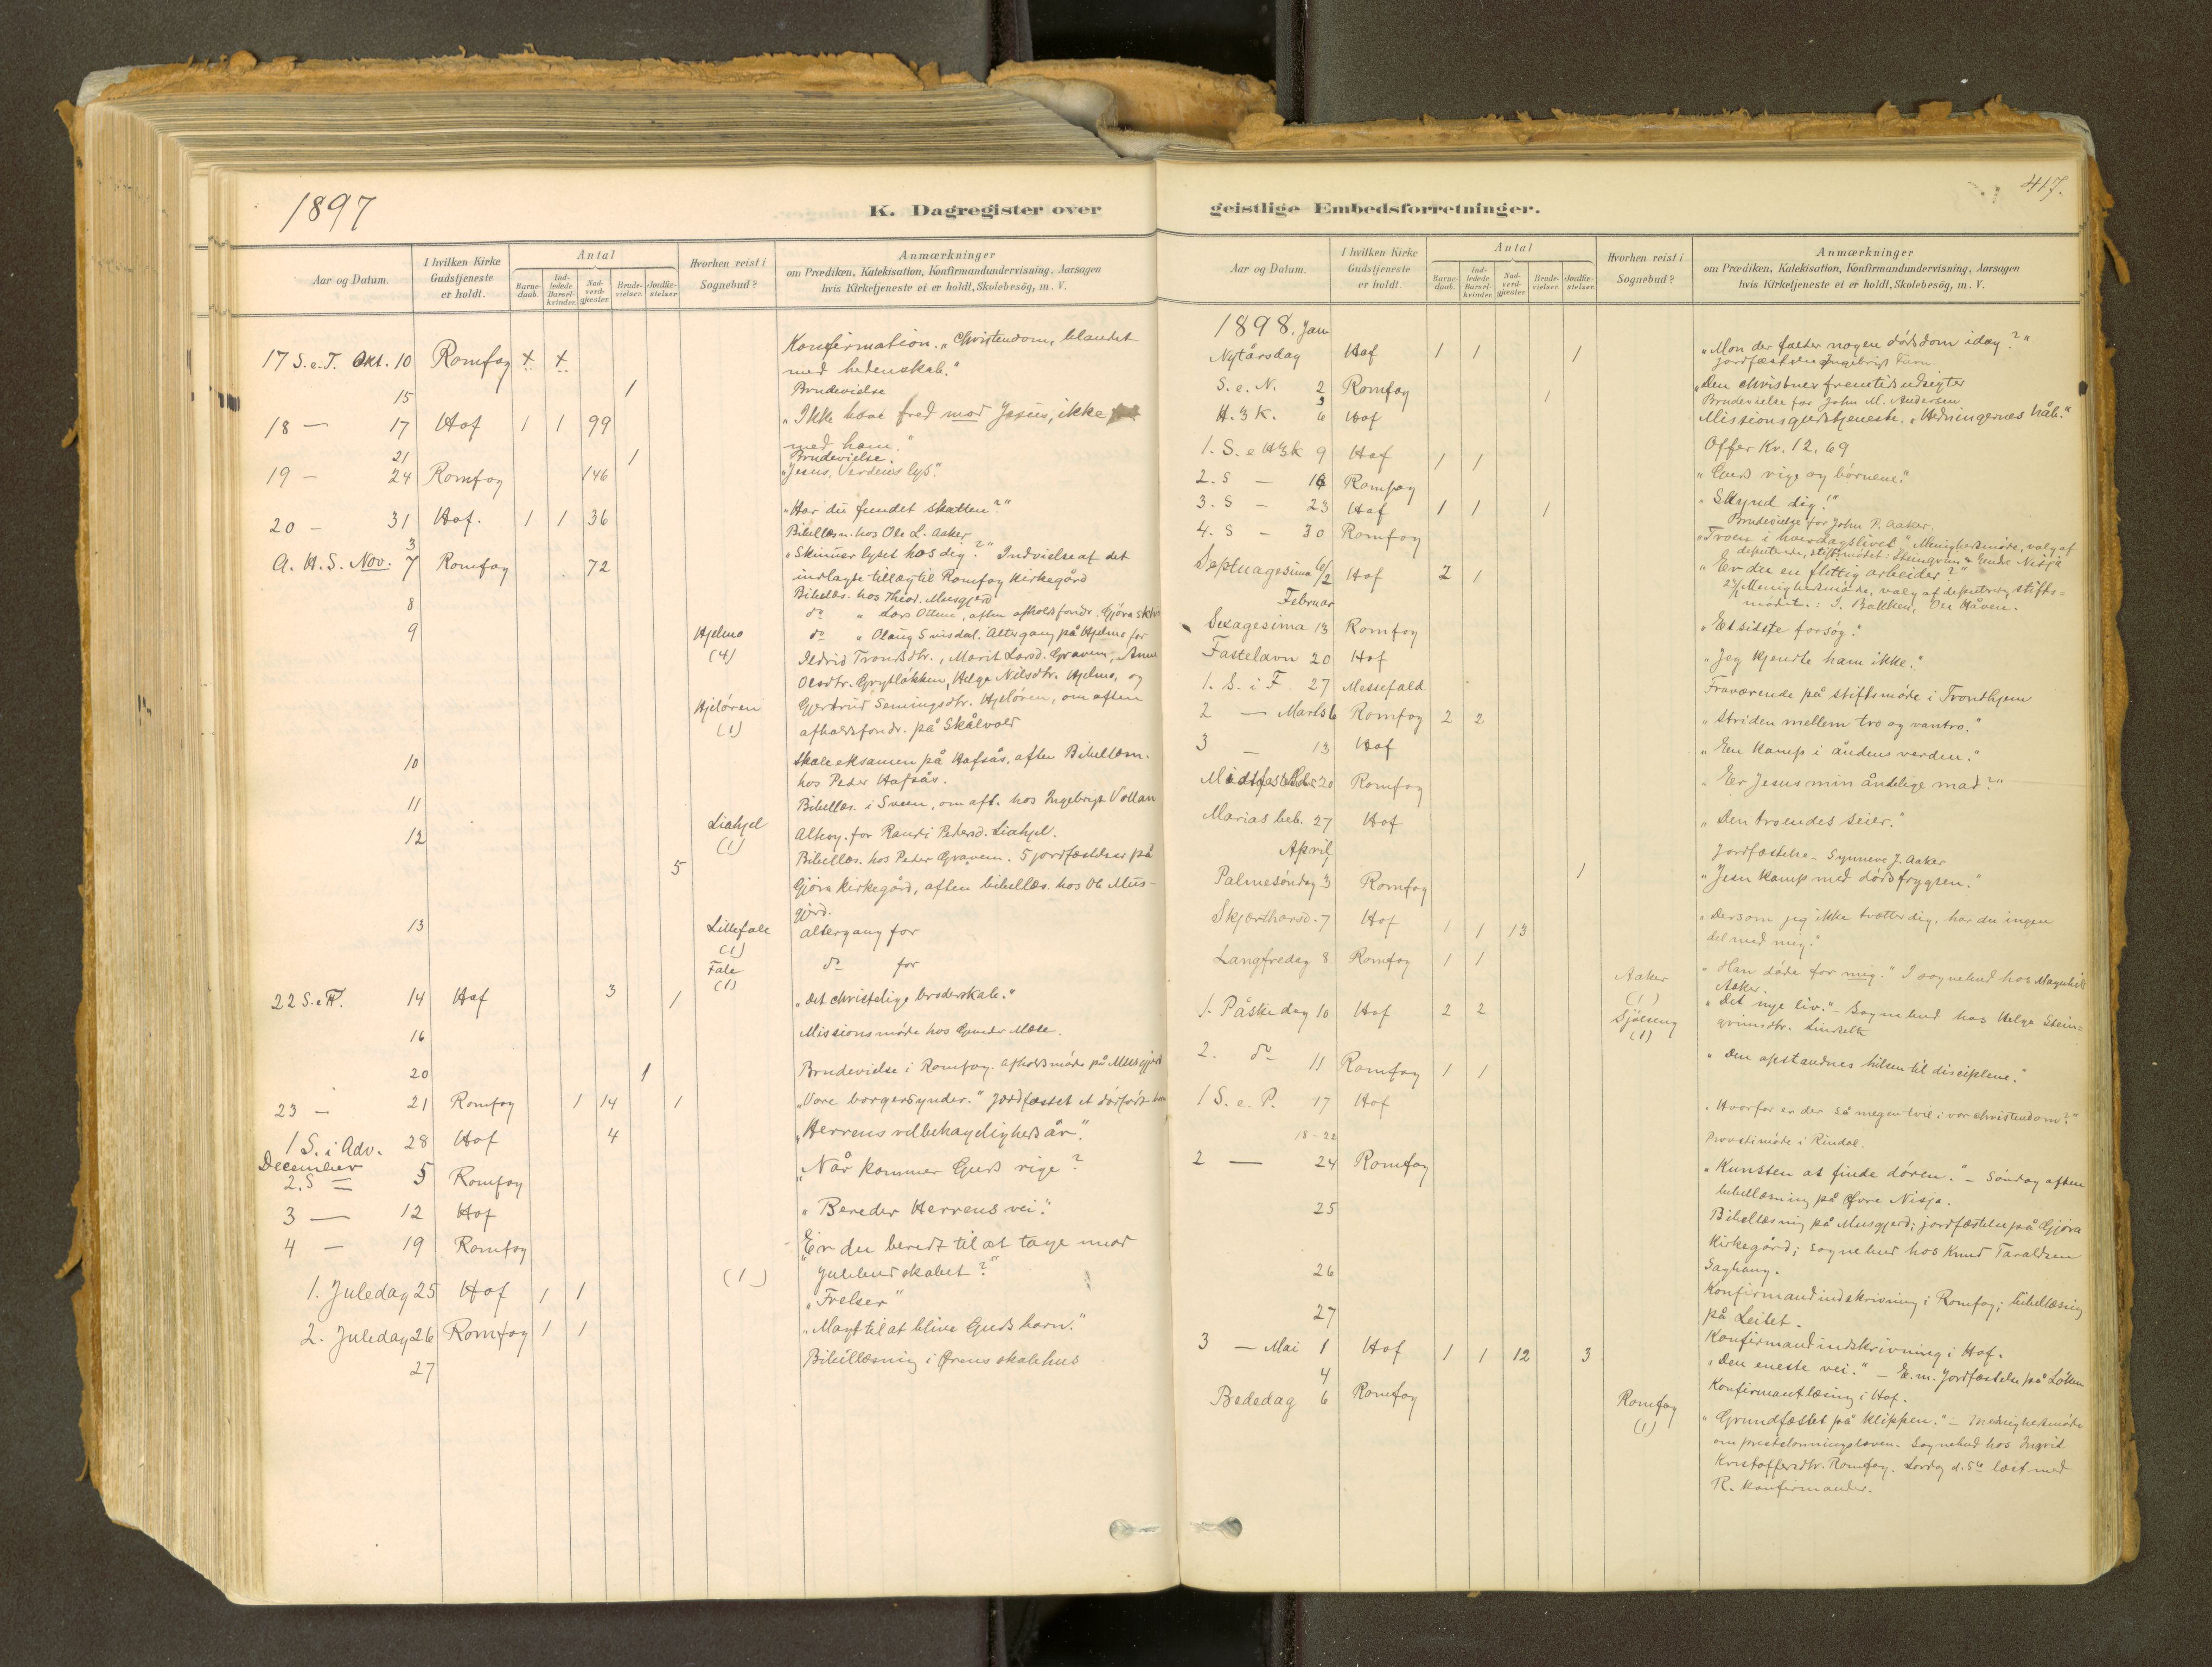 1897
K. Dagregister over
Aar og Datum.
I hvilken Kirke Gudstjeneste er holdt.
Antal
Barne-daab.
Ind-ledede Barsel-kvinder.
Nad-verd-gjester.
Brude-vielser.
Jordfæ-stelser
Hvorhen reist i Sognebud?
Anmærkninger
om Prædiken, Katekisation, Konfirmandundervisning, Aarsagen
hvis Kirketjeneste ei er holdt, Skolebesög, m. V.
Konfirmation. „Christendom, blandet
17 S.e.T. Okt. 10 Romfog + + med hedenskab."
15 1 Brudevielse
18 — 17 Hof 1 1 99 „Ikke have fred mod Jesus, ikke
med ham."
21 1 Brudevielse.
19 — 24 Romfog 146 „Jesus, Verdens lys."
20 - 31 Hof. 1 1 36 „Har du fundet skatten?"
3 Bibellæsn. hos Ole L. Aaker
A. H. S. Nov. 7 Romfog 72 „Skinner lyset hos dig?" Indvielse af det
indlagte tillæg til Romfog Kirkegård
Bibellæs. hos Theod. Musgjerd
8 do " Lars Ottem, aften afholdsfondr. Gjöra
9 Hjelmo do " Olaug Svisdal. Altergang på Hjelmo for
(4) Ildrid Trondsdtr., Marit Larsd. Gravem, Anne
Olsdtr. Grytløkken, Helga Nilsdtr. Hjelmo, og
Hjeløren Gjertrud Semingsdtr. Hjeløren, om aften
(1) afholdsfondr. på Skålvold
10 Skoleeksamen på Hafsås, aften Bibellæsn.
hos Peder Hafsås.
11 Bibellæs. i Sveen, om aft. hos Ingebrigt Vollan
12 Liahjel Alterg. for Randi Pedersd. Liahjel.
(1)
5 Bibellæs. hos Peder Gravem. 5 jordfæstelser på
Gjöra Kirkegård, aften bibellæs. hos Ole Mus-
gjerd.
13 Lillefale altergang for
(1)
Fale do for
(1)
22 S.e.T. 14 Hof 3 1 „Det christelige broderskab."
16 Missionsmøde hos Gunder Mæle.
20 1 Brudevielse i Romfog. Afholdsmøde på Musgjerd
23 — 21 Romfog 1 14 1 „Vore borgersynder." Jordfæstet et dødfødt
1 S. i Adv. 28 Hof 4 „Herrens velbehageligheds år".
December
2. S — 5 Romfog „Når kommer Guds rige?
3 — 12 Hof „Bereder Herrens vei."
4 — 19 Romfog „Er du beredt til at tage imod
(1) julebudskabet?"
1. Juledag 25 Hof 1 1 „Frelser"
2. Juledag 26 Romfog 1 1 „Magt til at blive Guds barn."
27 Bibellæsning i Ørens skolehus
417.
geistlige Embedsforretninger.
Aar og Datum.
I hvilken Kirke Gudstjeneste er holdt.
Antal
Barne-daab.
Ind-ledede Barsel-kvinder.
Nad-verd-gjester.
Brude-vielser.
Jordfæ-stelser.
Hvorhen reist i Sognebud?
Anmærkninger
om Prædiken, Katekisation, Konfirmandundervisning, Aarsagen
hvis Kirketjeneste ei er holdt, Skolebesög, m. V.
1898. Jan
Nytårsdag Hof 1 1 1 „Mon der falder nogen dødsdom idag?"
Jordfæstelse Ingebrigt
S. e. N. 2 Romfog „Den christnes fremtidsudsigter
3 1 Brudevielse for John M. Andersen
H. 3 K. 6 Hof Missionsgudstjeneste. „Hedningernes håb."
Offer Kr. 12,69
1. S. e H3K 9 Hof 1 1 „Guds rige og børnene."
2. S — 16 Romfog „Skynd dig!"
3. S — 23 Hof 1 1 1 Brudevielse for John P. Aaker.
4. S — 30 Romfog „Troen i hverdagslivet." Menighedsmøde, valg af
deputerede, stiftsmødet: Nisja
Septuagesima 6/2 Hof 2 1 „Er du en flittig arbeider?"
Menighedsmøde, valg af deputerede stifts=
Februar mødet: I. Bakken, Ole Håven.
Sexagesima 13 Romfog „Et sidste forsøg."
Fastelavn 20 Hof „Jeg kjendte ham ikke."
1. S. i F. 27 Messefald Fraværende på stiftsmøde i Trondhjem
2 — Marts 6 Romfog 2 2 „Striden mellem tro og vantro."
3 — 13 Hof „En kamp i åndens verden."
Midtfaste 20 Romfog „Er Jesus min åndelige mad?"
Marias beb. 27 Hof „Den troendes seier."
April, Jordfæstelse - Synneve J. Aaker
Palmesøndag 3 Romfog 1 „Jesu kamp med dødsfrygten."
Skjærthorsd. 7 Hof 1 1 13 „Dersom jeg ikke tvætter dig, har du ingen
del med mig."
Langfredag 8 Romfog 1 1 Aaker „Han døde for mig." I sognebud hos Magnhild
(1) Aaker.
1. Påskedag 10 Hof 2 2 Sjölseng „Det nye liv." - Sognebud hos Helga Stein=
(1) grimsdtr.
2. do 11 Romfog 1 1 „Den opstandnes hilsen til disciplene."
1 S. e. P. 17 Hof „Hvorfor er der så megen tvil i vor christendom?"
18-22 Provstimöde i Rindal.
2 — 24 Romfog „Kunsten at finde døren." - Søndag aften
bibellæsning på Øvre Nisja.
25 Bibellæsning på Musgjerd; jordfæstelse på Gjöra
Kirkegård; sognebud hos Knud Taraldsen
Saghaug.
26 Konfirmandindskrivning i Romfog; bibellæsning
på Leitet.
27 Konfirmandindskrivning i Hof.
3 — Mai 1 Hof 1 1 12 3 „Den eneste vei." - E. m. Jordfæstelse på Løkken
4 Konfirmantlæsning i Hof.
Bededag 6 Romfog Romfog „Grundfæstet på klippen." - Menighedsmøde
(1) om prestelønningsloven. Sognebud hos Ingrid
Kristoffersdtr. Romfog. d. 5te læst med
R. konfirmander.